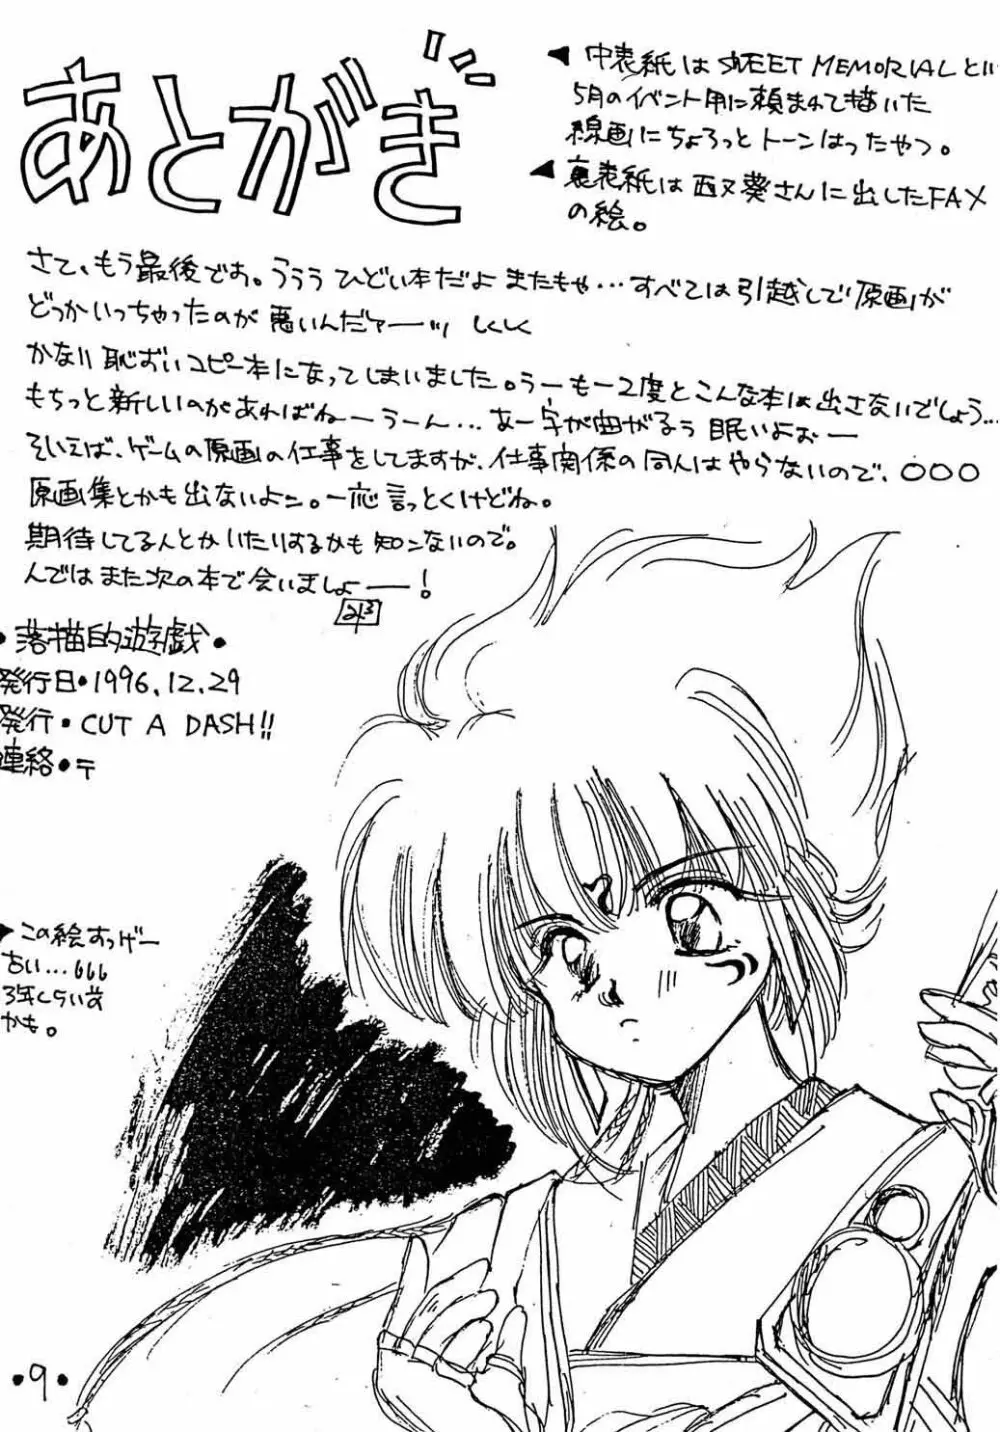 あとがき
◀ 中表紙は SWEET MEMORIAL とい
5月のイベント用に頼まれて描いた
線画にちょろっとトーンはったやつ。
◀ 裏表紙は西又葵さんに出したFAX
の絵。
さて、もう最後です。うううひどい本だよまたもや…すべては引越しで原画が
どっかいっちゃったのが悪いんだァーッ しくしく
かなり恥ずいコピー本になってしまいました。うーもー2度とこんな本は出さないでしょう…
もちっと新しいのがあればねーうーん…あー字が曲がるぅ眠いよぉー
そいえば、ゲームの原画の仕事をしてますが、仕事関係の同人はやらないので、○○○
原画集とかも出ないよン。一応言っとくけどね。
期待してる人とかいたりするかも知ンないので。
んではまた次の本で会いましょー!
•落描的遊戯•
発行日•1996.12.29
発行•CUT A DASH!!
連絡•〒
▶この絵すっげー
古い…
3年くらい前
かも。
•9•